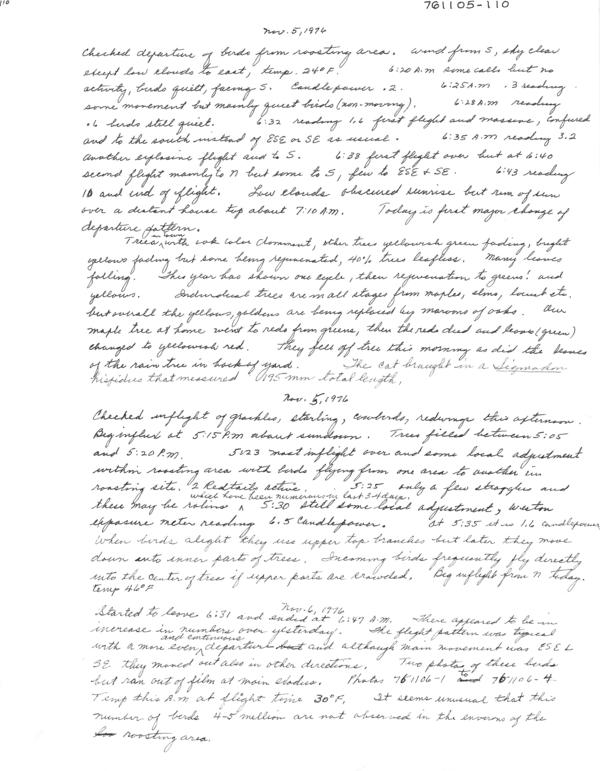 110
761105-110
Nov. 5, 1976
Checked departure of birds from roosting area. Wind from S, sky clear
except low clouds to east, temp. 24°F. 6:20 A.M some calls but no
activity, birds quiet, facing S. Candlepower .2. 6:25 A.M. .3 reading
some movement but mainly quiet birds (non-moving). 6:28 A.M reading
.6 birds still quiet. 6:32 reading 1.6 first flight and massive, confused
and to the south instead of ESE or SE as usual. 6:35 A.M reading 3.2
another explosive flight and to S. 6:38 first flight over but at 6:40
second flight mainly to N but some to S, few to ESE & SE. 6:43 reading
10 and end of flight. Low clouds obscured sunrise but rim of sun
over a distant house top about 7:10 A.M. Today is first major change of
departure pattern.
Trees in town with oak color dominant, other trees yellowish green fading, bright
yellows fading but some being rejuvenated, 40% trees leafless. Many leaves
falling. This year has shown one cycle, then rejuvenation to greens! and
yellows. Individual trees are in all stages from maples, elms, locust etc.
but overall the yellows, goldens are being replaced by maroons of oaks. Our
maple tree at home went to reds from greens, then the reds died and leaves (green)
changed to yellowish red. They fell off tree this morning as did the leaves
of the rain tree in back of yard. The cat brought in a Sigmodon
hispidus that measured 195 mm total length.
Nov. 5, 1976
Checked inflight of grackles, starling, cowbirds, redwings this afternoon.
Big influx at 5:15 P.M about sundown. Trees filled between 5:05
and 5:20 P.M. 5:23 most inflight over and some local adjustment
within roosting area with birds flying from one area to another in
roosting site. 2 Redtails active. 5:25 only a few stragglers and
these may be robins which have been numerous last 3-4 days. 5:30 still some local adjustment, Weston
exposure meter reading 6.5 Candlepower. At 5:35 it is 1.6 candlepower
When birds alight they use upper top branches but later they move
down into inner parts of trees. Incoming birds frequently fly directly
into the center of tree if upper parts are crowded. Big inflight from N today.
temp 46°F
Nov. 6, 1976
Started to leave 6:31 and ended at 6:47 A.M. There appeared to be in
increase in numbers over yesterday. The flight pattern was typical
with a more even and continuous departure but and although main movement was ESE &
SE they moved out also in other directions. Two photos of these birds
but ran out of film at main exodus. Photos 761106-1 to 761106-4
Temp this A.M at flight time 30°F. It seems unusual that this
number of birds 4-5 million are not observed in the environs of the
roosting area.